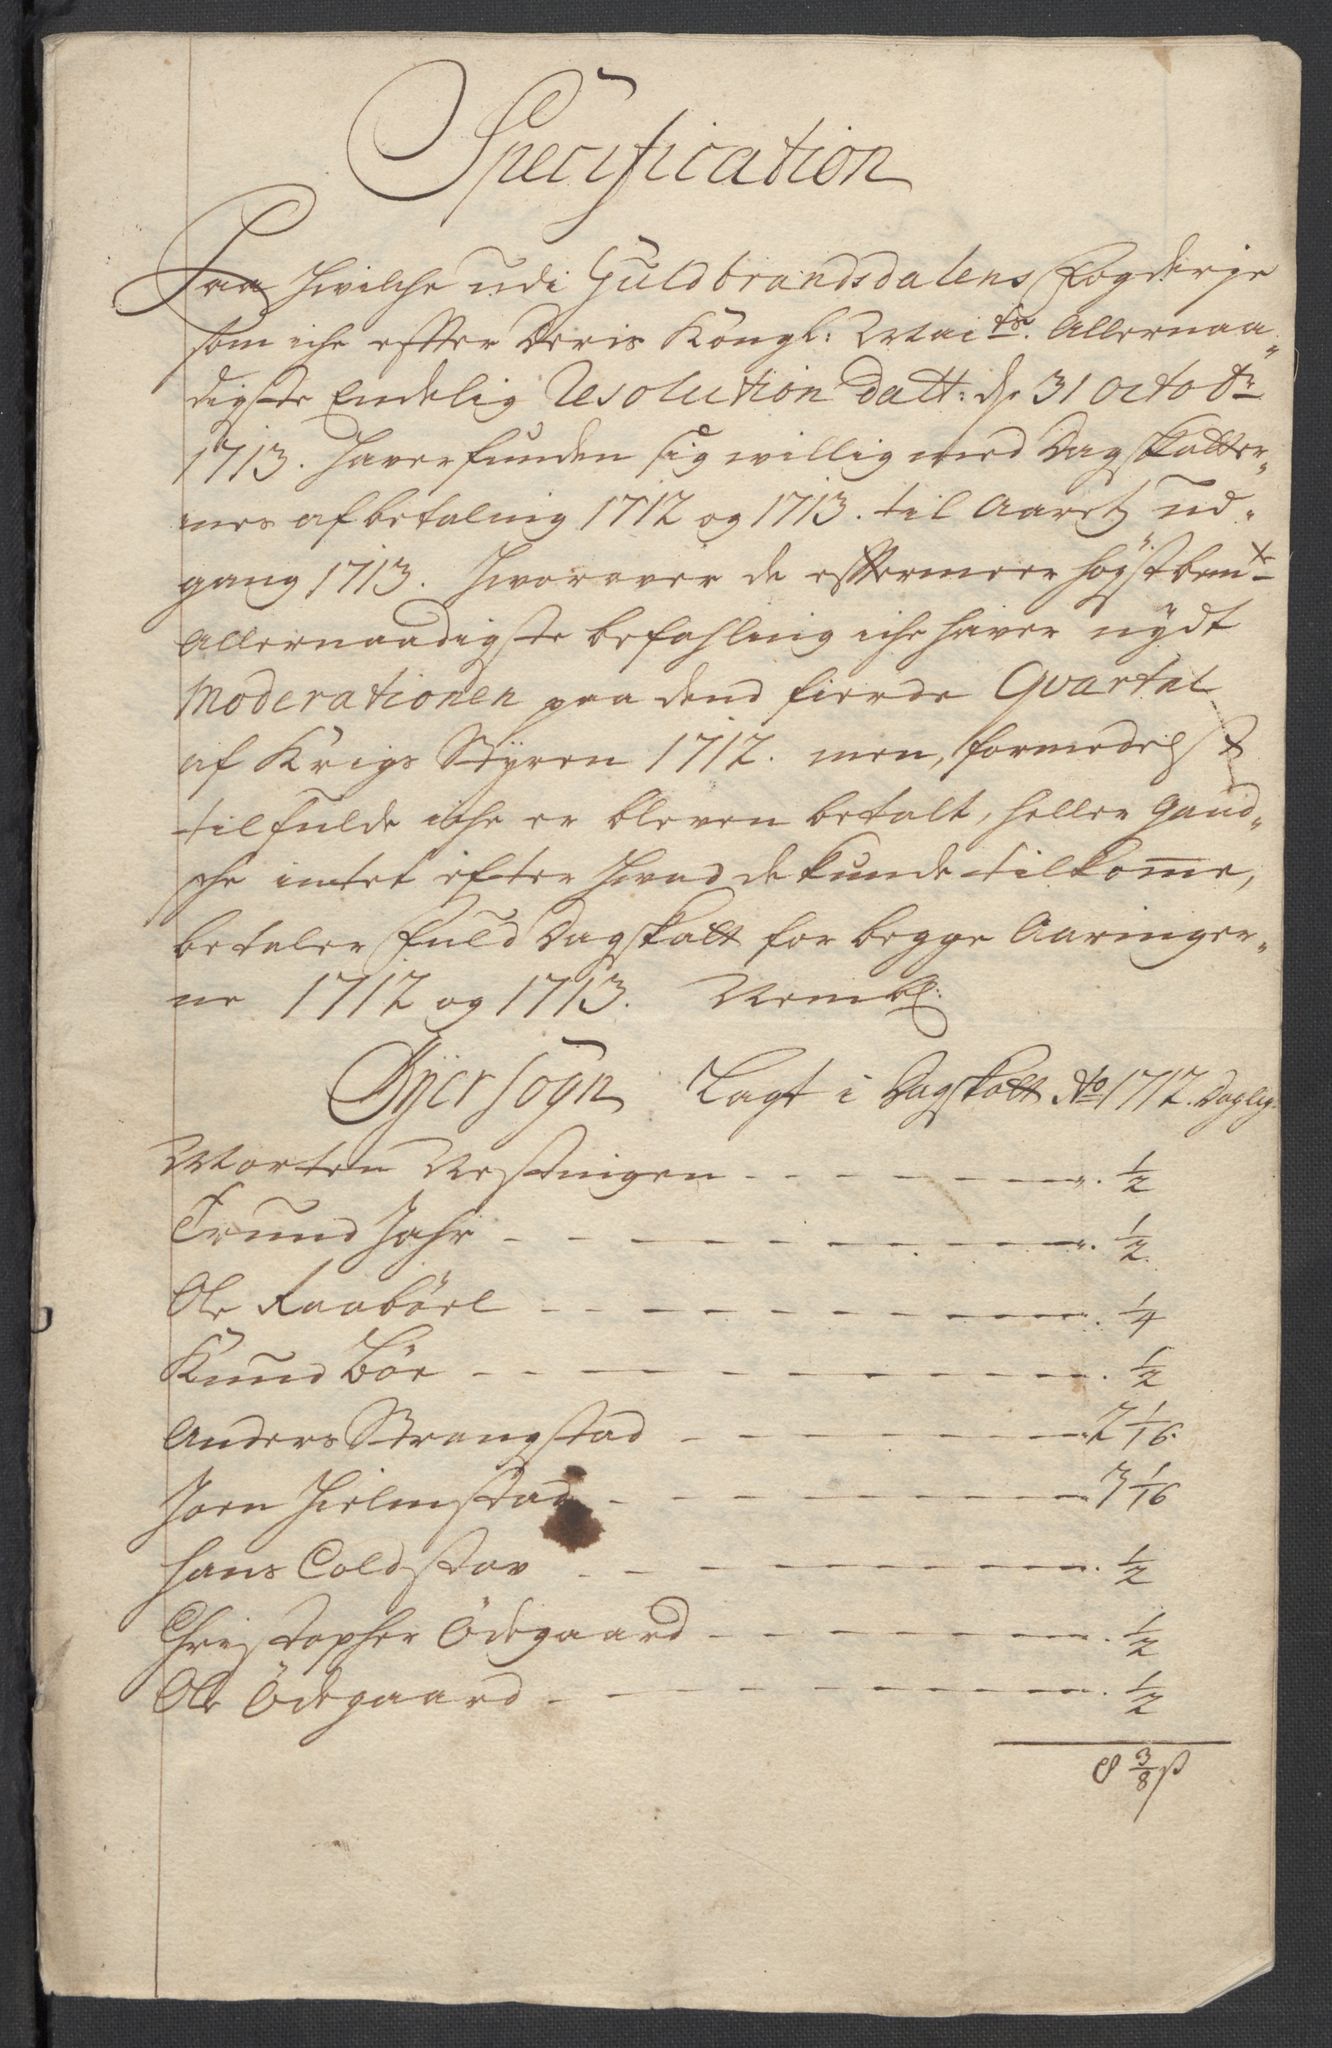 Specification
Paa Hvilche udi Guldbrandsdalens Fogderje
som iche effter Deris Kongl: Mai:ts Allernaa„
digste Endelig Resolution Datt: d. 31 Octobr
1713. Haver funden sig willig med Dagskatter„
nes afbetaling 1712 og 1713. til Aaretz ud„
gang 1713. Hvorover de effter meer högstbemte
Allernaadigste befahling iche haver nÿdt
Moderationen paa dend fierde Qvartal
af Krigs Stÿren 1712. men, formedelst
til fulde iche er bleven betalt, heller
iche intet efter Hvad de kunde tilkome,
betaler fuld Dagskatt for begge Aaringer„
ne 1712 og 1713. Nembl:
Öÿer Sogn Lagt i Dagskatt Ao 1712. Daglig.
Morten Nestingen - - - „. 1/2
Trund Jahr - - - „. 1/2
Ole Raaböel - - - . 1/4
Knud Böe - - - . 1/2
Anders Strangstad - - - 2 1/16
Joen Hielmstad - - - 3 1/16
Hans Coldstav - - - . 1/2
Christopher Ödegaard - - - . 1/2
Ole Ödegaard - - - . 1/2
8 3/8 ß